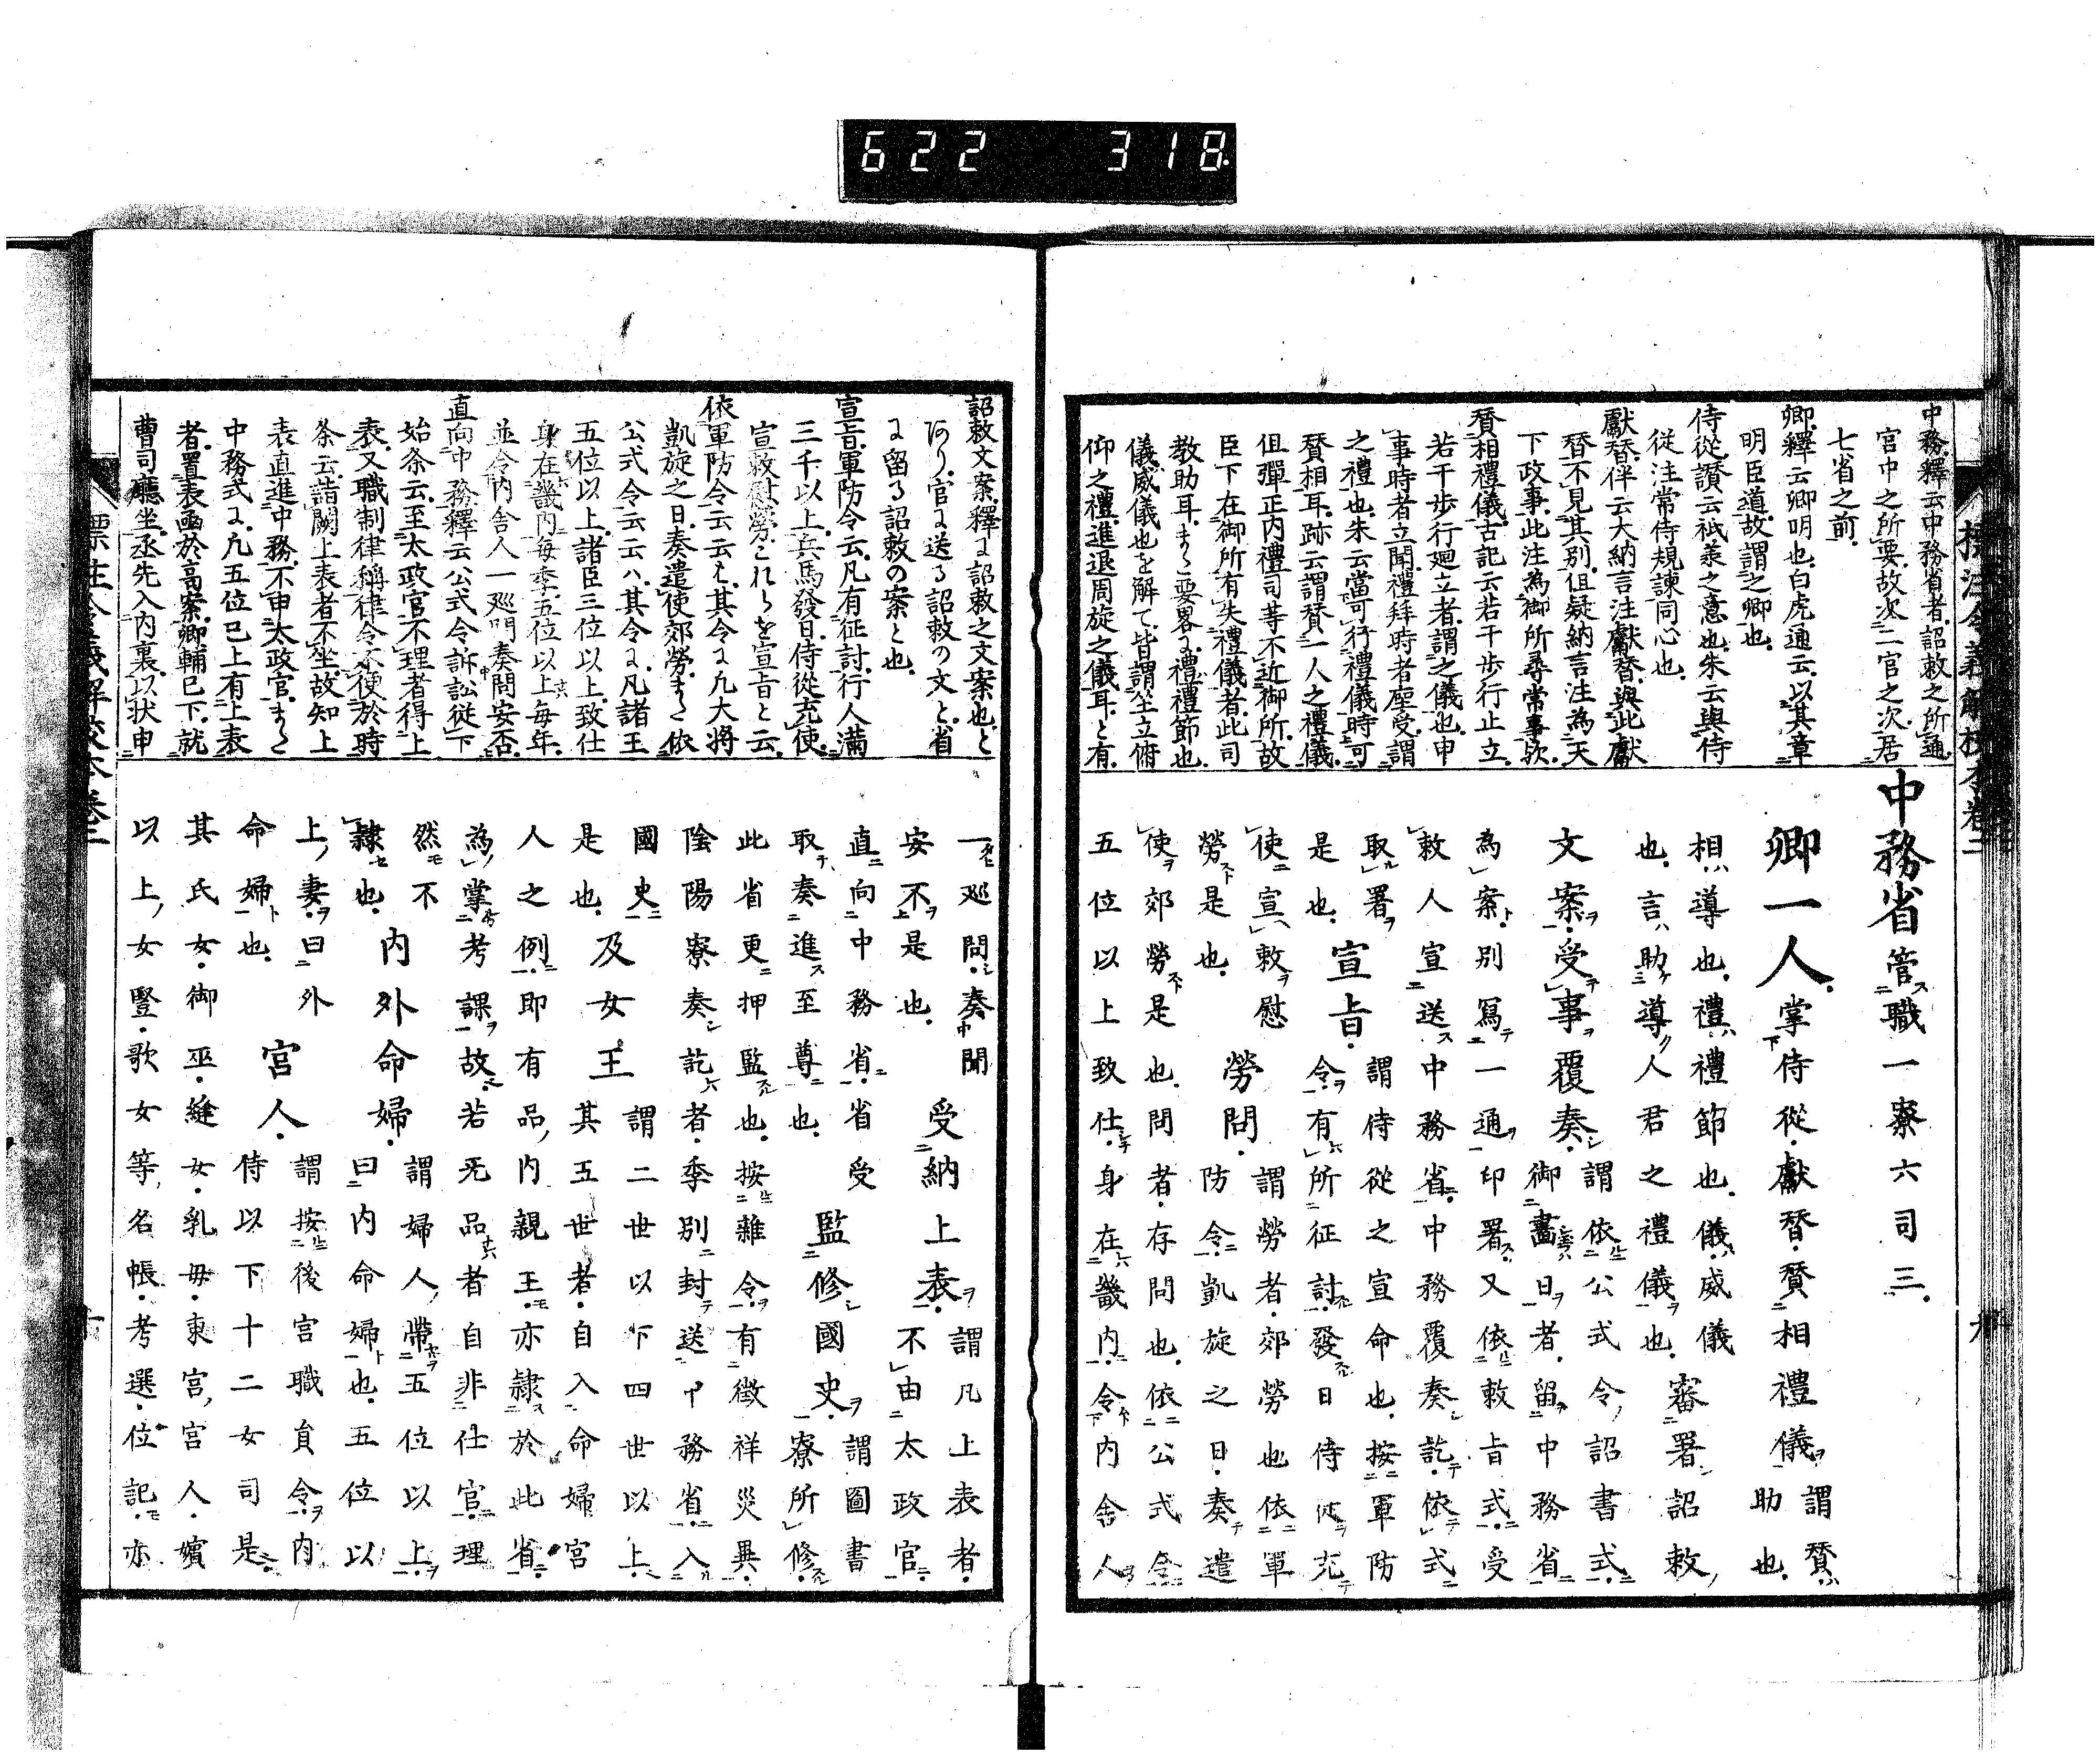 622 318
中務釋云中務省者詔敕之所通
官中之所要故次二官之次居
七省之前
卿釋云卿明也白虎通云以其章
明臣道故謂之卿也
侍從讚云祇兼之意也朱云與侍
從注常侍規諫同心也
獻替伴云大納言注獻替與此獻
替不見其別但疑納言注為天
下政事此注為御所尋常事歟
賛相禮儀古記云若干歩行止立
若干歩行廻立者謂之儀也申
事時者立聞禮拜時者座受謂
之禮也朱云當可行禮儀時可
賛相耳跡云謂賛一人之禮儀
但彈正内禮司等不近御所故
臣下在御所有失禮儀者此司
教助耳また要畧に禮禮節也
儀威儀也を解て皆謂坐立俯
仰之禮進退周旋之儀耳と有
中務省管職一寮六司三
卿一人掌侍從獻替賛相禮儀謂賛助也
相導也禮禮節也儀威儀
也言助導人君之禮儀也審署詔敕
文案受事覆奏謂依公式令詔書式
御畫日者留中務省
為案別寫一通印署又依敕旨式受
敕人宣送中務省中務覆奏訖依式
取署宣旨謂侍從之宣命也按軍防
是也令有所征討發日侍從充
使宣敕慰勞問謂勞者郊勞也依軍
勞是也防令凱旋之日奏遣
使郊勞是也問者存問也依公式令
五位以上致仕身在畿内令内舍人
詔敕文案釋に詔敕之文案也と
あり官に送る詔敕の文と省
に留る詔敕の案と也
宣旨軍防令云凡有征討行人滿
三千以上兵馬發日侍從充使
宣敕慰勞これらを宣旨と云
依軍防令云云は其令に凡大將
凱旋之日奏遣使郊勞また依
公式令云云八其令に凡諸王
五位以上諸臣三位以上致仕
身在畿内毎季五位以上毎年
並令内舍人一巡問奏聞安否
直向中務釋云公式令訴訟從下
始条云至太政官不理者得上
表又職制律稱律令不便於時
条云詣闕上表者不坐故知上
表直進中務不申太政官また
中務式に凡五位已上有上表
者置表函於高案卿輔已下就
曹司廳坐丞先入内裏以状申
標注令義解校本卷二
一巡問奏聞受納上表謂凡上表者
安不是也不由太政官
直向中務省省受監修國史謂圖書
取奏進至尊也寮所修
此省更押監也按雜令有徴祥災異
陰陽寮奏訖者季別封送中務省入
國史及女王謂二世以下四世以上
是也其五世者自入命婦宮
人之例即有品内親王亦隷於此省
為掌考課故若旡品者自非仕官理
然不内外命婦謂婦人帶五位以上
隷也曰内命婦也五位以
上妻曰外宮人謂按後宮職員令内
命婦也侍以下十二女司是
其氏女御巫縫女乳母東宮宮人嬪
以上女豎歌女等名帳考選位記亦